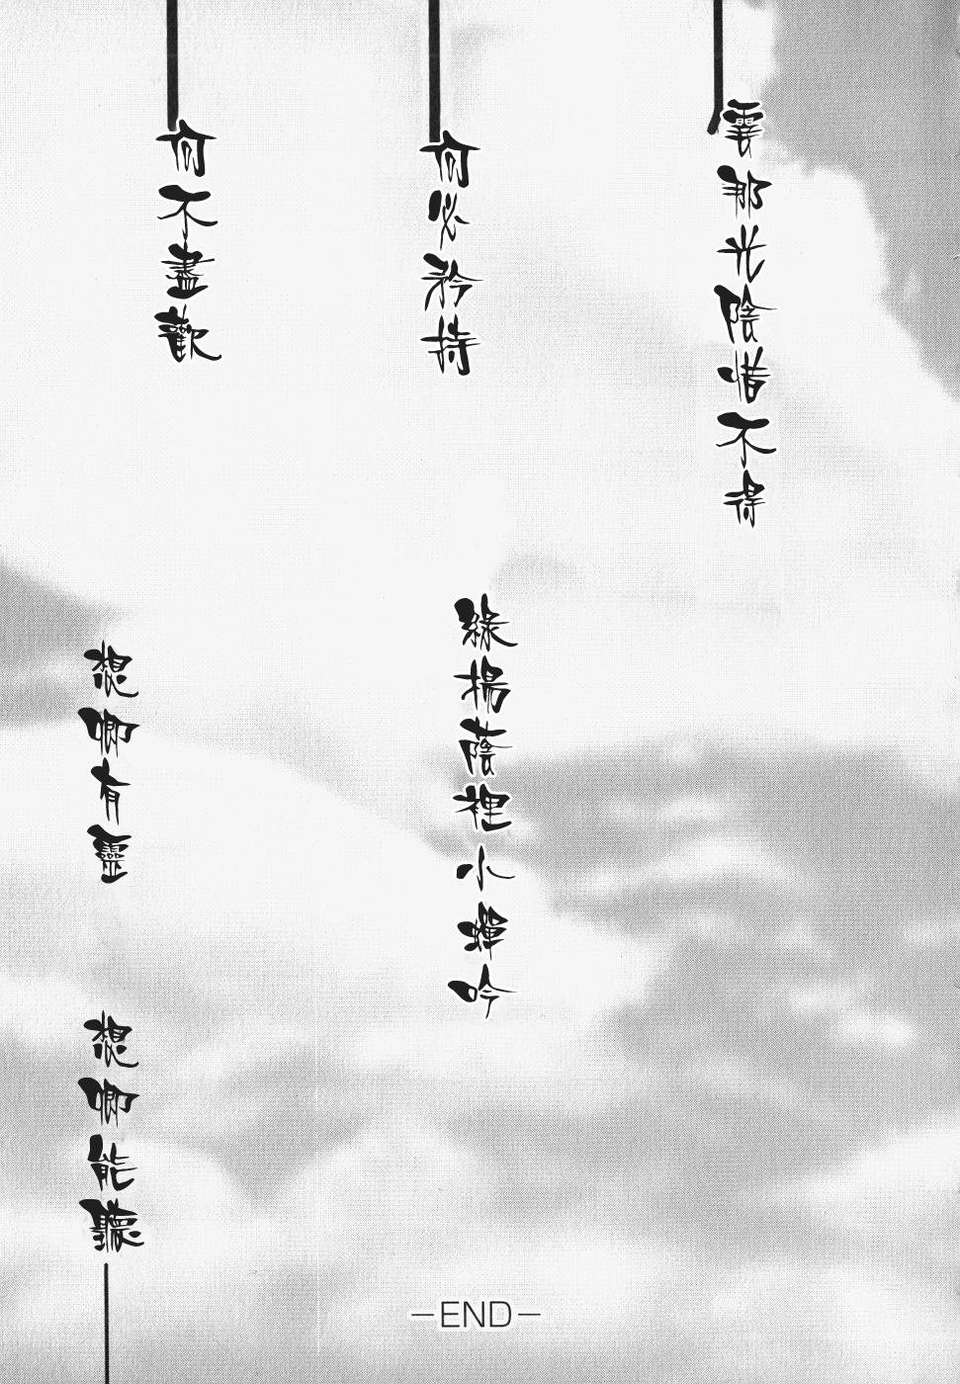 霎那光陰惜不得
綠楊蔭裡小蟬吟
何必矜持
何不盡歡
想卿有靈 想卿能聽
—END—